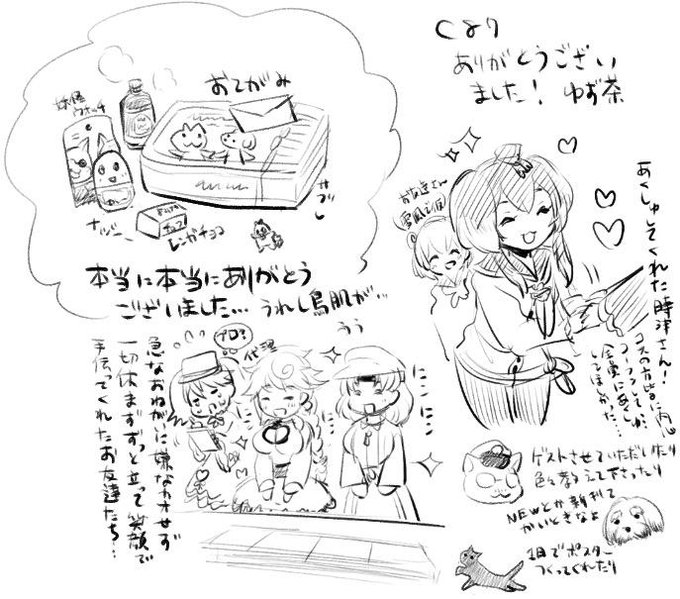 おてがみ
妖怪
ウォッチ
ナッシー
チョコ
レンガチョコ
本当に本当にありがとう
ございました… うれし鳥肌が…
うぅ
ありがとうござい
ました! ゆず茶
お友達さん
雪風之図
あくしゅしてくれた時津さん!
コスの方皆に内心
会場にあくしゅ
してほしかった…
プロ?
代理
にこ
にこ
にこ
急なおねがいに嫌なカオせず
一切休まずずっと立って笑顔で
手伝ってくれたお友達たち…
ゲストさせていただいたり
色々教えて下さったり
NEWとか新刊て
かいときなよ
1日でポスター
つくってくれたり